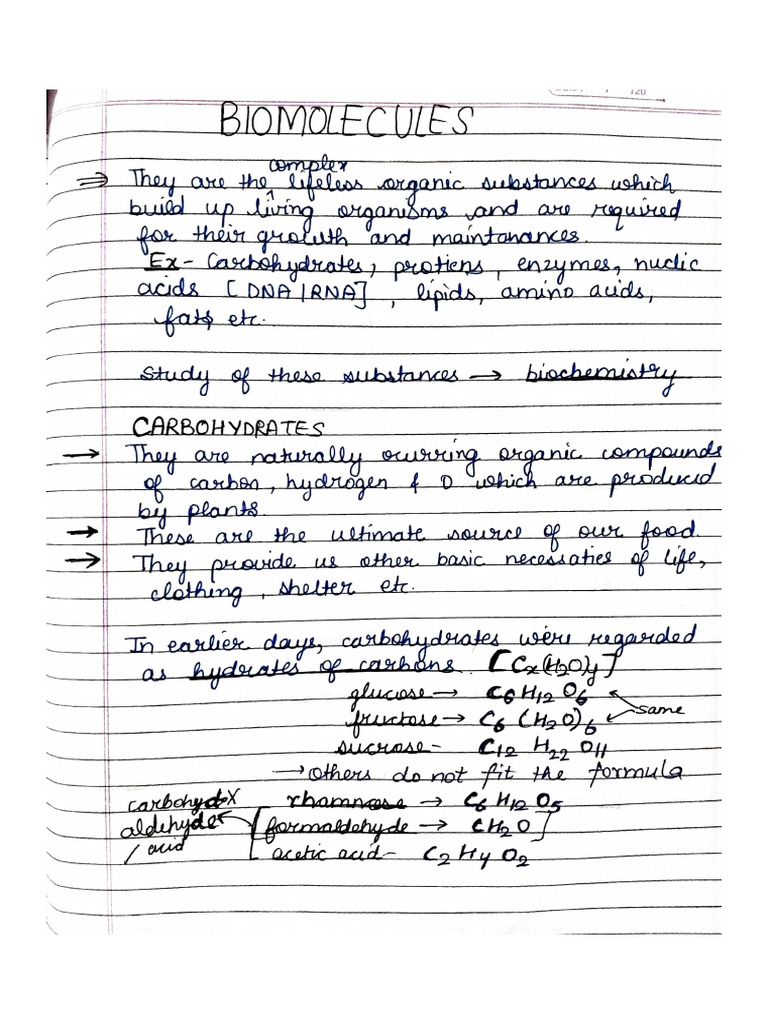 BIOMOLECULES
complex
⇒ They are the ^ lifeless organic substances which
build up living organisms and are required
for their growth and maintanances.
Ex - Carbohydrates, protiens, enzymes, nuclic
acids [DNA/RNA], lipids, amino acids,
fats etc.
Study of these substances → biochemistry
CARBOHYDRATES
→ They are naturally ocurring organic compounds
of carbon, hydrogen & O which are produced
by plants.
→ These are the ultimate source of our food.
→ They provide us other basic necessaties of life,
clothing, shelter etc.
In earlier days, carbohydrates were regarded
as hydrates of carbons. [Cx(H2O)y]
glucose → C6H12O6
fructose → C6(H2O)6 same
sucrose - C12H22O11
→ others do not fit the formula
rhamnose → C6H12O5
carbohyd X
aldehyde formaldehyde → CH2O
/ acid acetic acid - C2H4O2